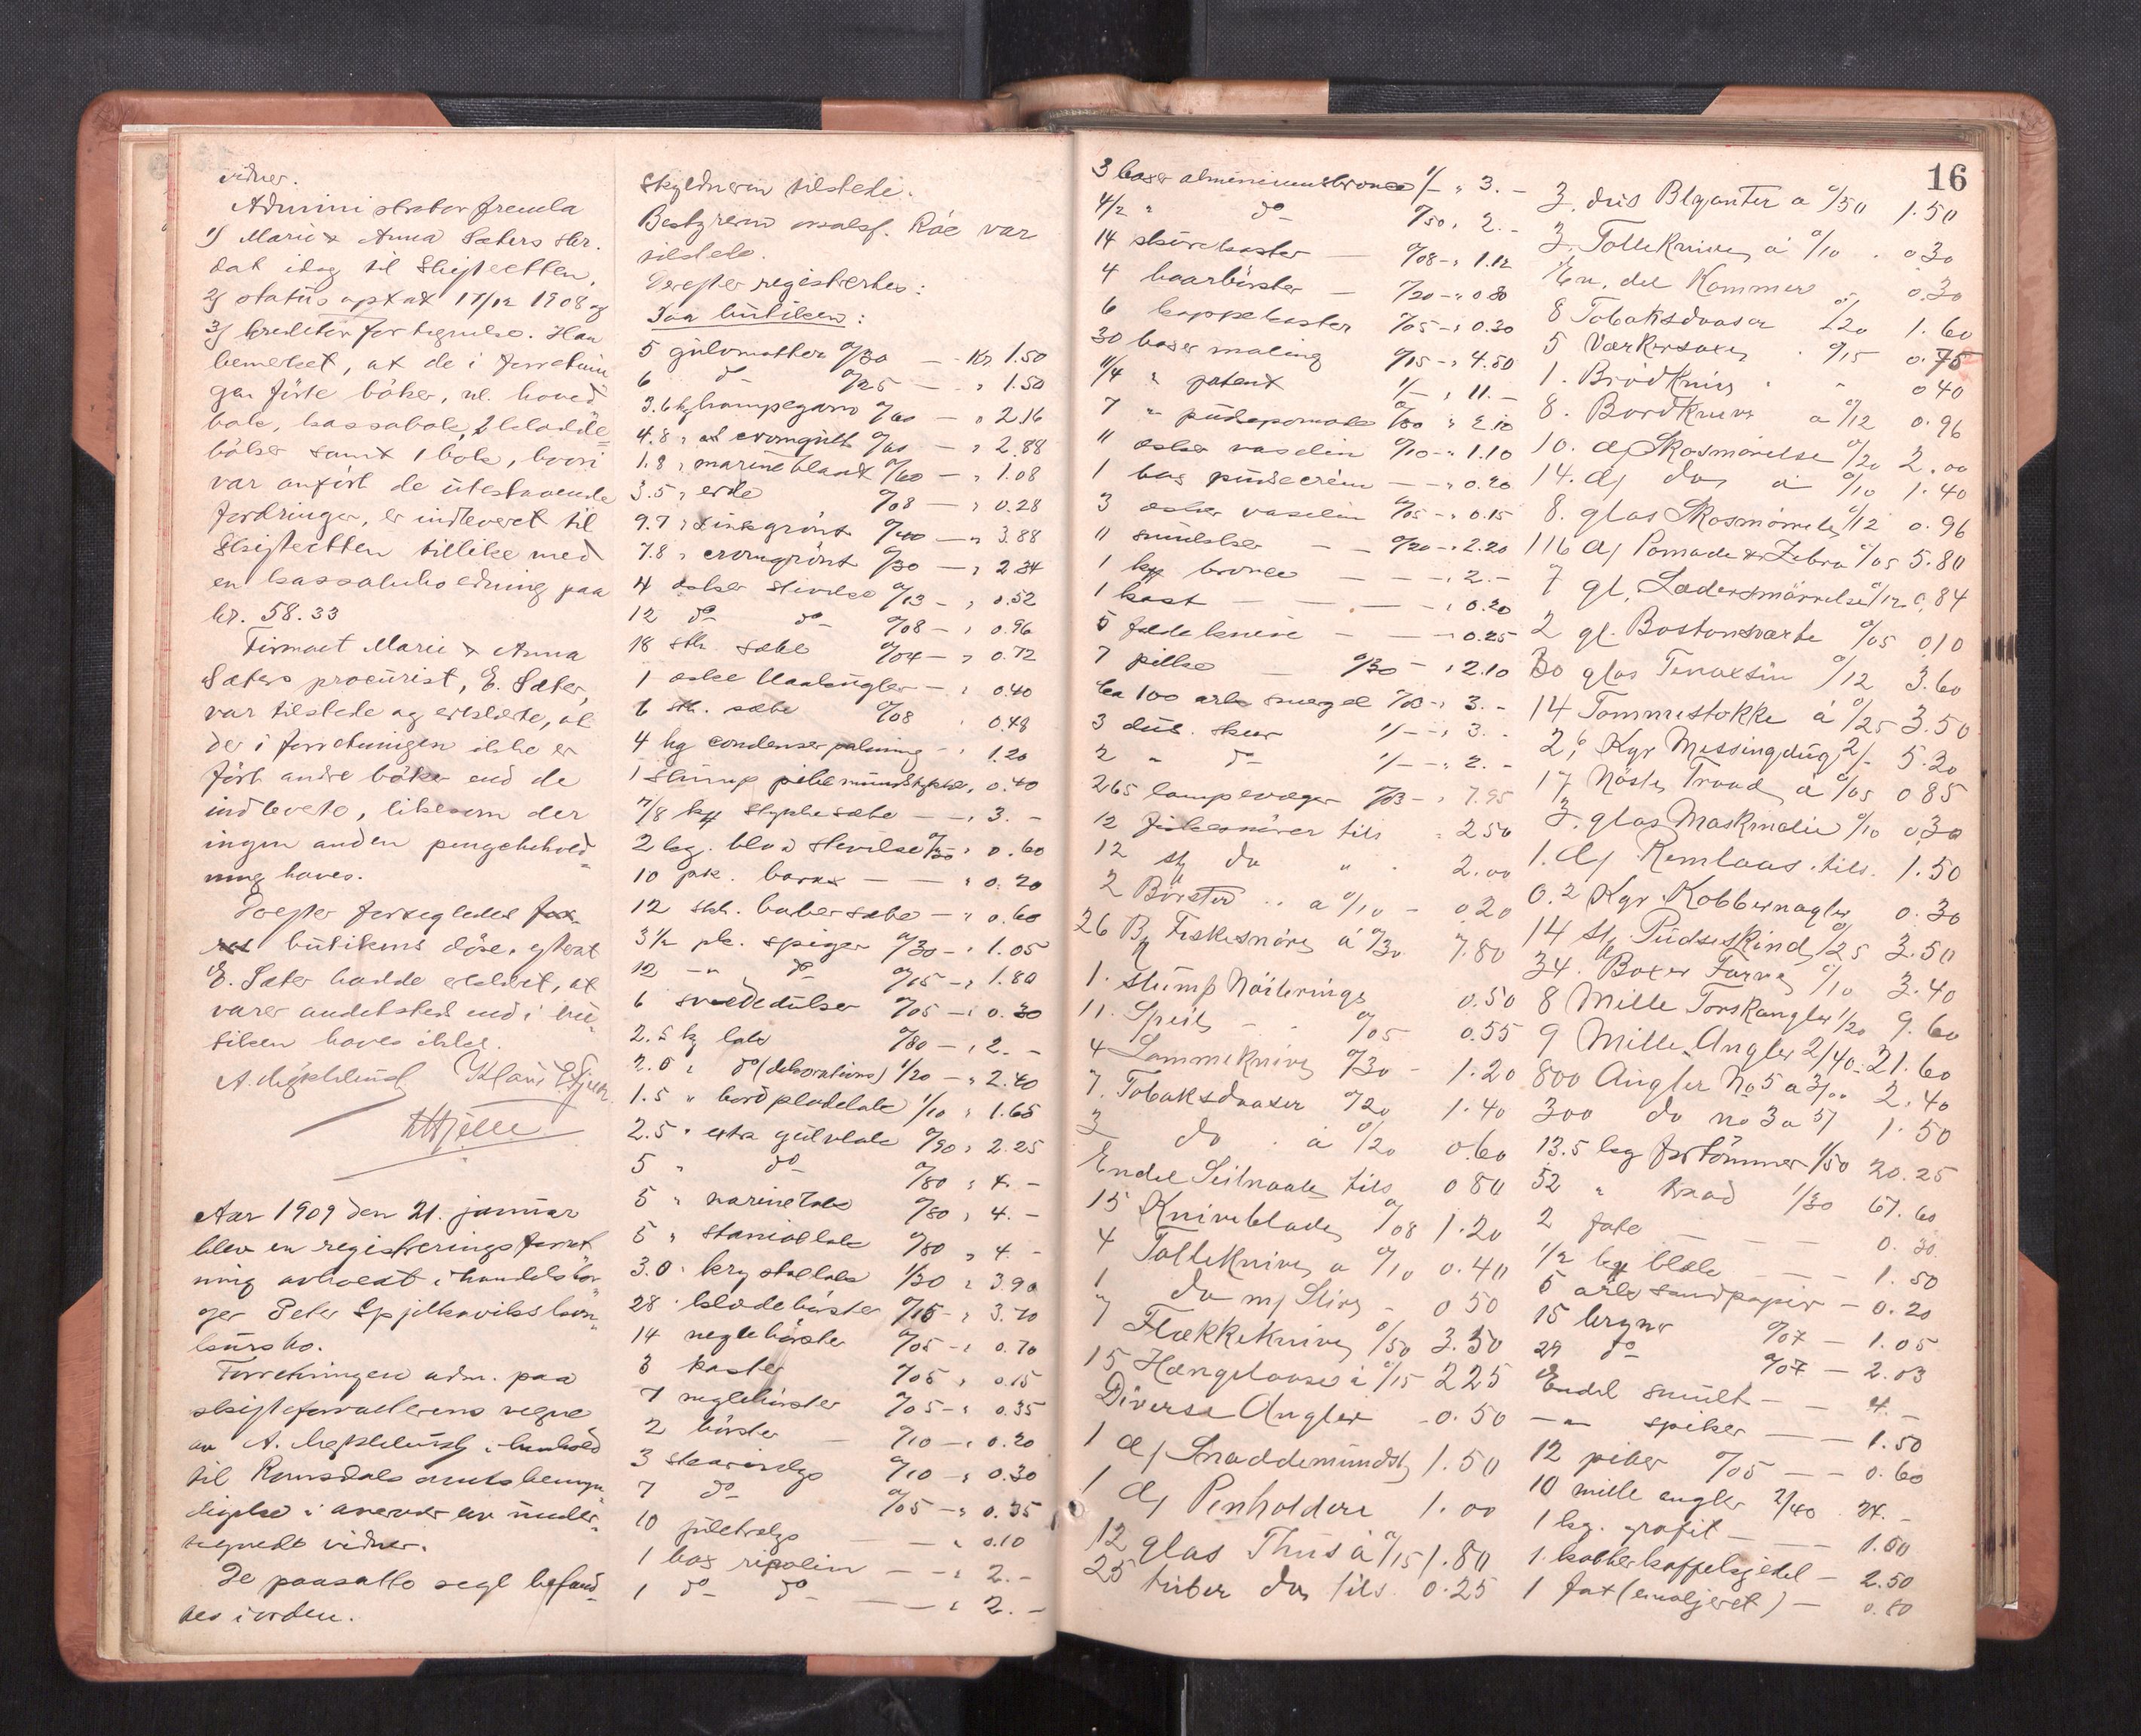 vidner.
Administrator fremla
1) Marie & Anna Sæters skr.
dat idag til Skifteretten,
2) status opt at 17/12 1908 og
3) kreditorfortegnelse. Han
bemerket, at de i forretnin
gen førte bøker, nl. hoved
bok, kassabok, 2 kladde=
bøker samt 1 bok, hvori
var anført de utestaaende
fordringer, er indleveret til
Skifteretten tillike med
en kassabeholdning paa
kr. 58.33
Firmaet Marie & Anna
Sæters procurist, E. Sæter,
var tilstede og erklærte, at
der i forretningen ikke er
ført andre bøker end de
indleverte, likesom der
ingen anden pengebehold=
ning haves.
Derefter forsegledes
butikens døre, efterat
E. Sæter hadde erklært, at
varer andetsteds end i bu=
tiken haves ikke.
Aar 1909 den 21. januar
blev en registreringsforret
ning avholdt i handelsbor
ger Peter Spjelkaviks kon=
kursbo.
Forretningen adm. paa
skifteforvalterens vegne
av A. i henhold
til Romsdals amts bemyn=
digelse i nærvær av under=
tegnede vidner.
De paasatte segl befand=
tes i orden.
Skyldneren tilstede.
Bestyreren overetssakf. Råe var
tilstede.
Derefter registrertes:
Paa butiken:
5 gulvmatter 0/30 — Kr 1.50
6 do 0/25 — " 1.50
3.6 kg hampegarn 0/60 — " 2.16
4.8 " cromgult 0/60 — " 2.88
1.8 " marineblaat 0/60 — " 1.08
3.5 " erde 0/08 — " 0.28
9.7 " zinkgrønt 0/40 — " 3.88
7.8 " cromgrønt 0/30 — " 2.34
4 æsker stivelse 0/13 — " 0.52
12 do do 0/08 — " 0.96
18 stk. sæbe 0/04 — " 0.72
1 æske blaakugler — " 0.40
6 stk. sæbe 0/08 " 0.48
4 kg condenserpakning — " 1.20
1 slump pibemundstykker, 0.40
7/8 ks stykkesæbe — — " 3. —
2 kg. blaa stivelse 0/30 " 0.60
10 pk. borax — — " 0.20
12 stk. barbersæbe — " 0.60
3½ pk. spiger 0/30 — " 1.05
12 —"— do 0/15 — " 1.80
6 0/05 — " 0.30
2.5 kg lak 0/80 — " 2. —
2.0 " do (dekorations) 1/20 — " 2.40
1.5 " bordpladelak 1/10 " 1.65
2.5 " extra gulvlak 0/90 " 2.25
5 " do 0/80 " 4. —
5 " marinelak 0/80 " 4. —
5 " staniollak 0/80 " 4. —
3.0 " krystallak 1/30 " 3.90
28 klædebørster 0/15 — " 3.70
14 neglebørster 0/05 — " 0.70
3 koster 0/05 " 0.15
7 neglebørster 0/05 — " 0.35
2 børster 0/10 — " 0.20
3 0/10 — " 0.30
7 do 0/05 — " 0.35
10 — — " 0.10
1 box ripolin — — " 2. —
1 do do — — " 2. —
16
3 boxer aluminiumsbronce 1/— " 3. —
4/2 " do 0/50 " 2. —
14 skurekoster — 0/08 — " 1.12
4 haarbørster — 0/20 — " 0.80
6 koppekoster 0/05 — " 0.30
30 boxer maling 0/15 — " 4.50
11/4 " patent 1/— " 11. —
7 " pudsepomade 0/30 " 2.10
11 æsker vaselin 0/10 — " 1.10
1 box pudsecrem — — " 0.20
3 æsker vaselin 0/05 — " 0.15
11 — — 0/20 — " 2.20
1 kg bronce — — — " 2. —
1 kost — — — — " 0.20
5 foldeknive — — — 0.25
7 0/30 — " 2.10
ca 100 ark smergel 0/03 — " 3. —
3 dus. 1/— — " 3. —
2 " do 1/— — " 2. —
265 lampevæger 0/03 — " 7.95
12 fiskesnører tils " 2.50
12 st do " " 2.00
2 Børster .. a 0/10 — 0.20
26 B Fiskesnøre á 0/30 " 7.80
1. Slump Nøileringe 0.50
11. Speil — . 0/05 0.55
4 Lommeknive 0/30 — 1.20
7. Tobaksdaaser 0/20 1.40
3 do . á 0/20 0.60
Endel Seilnaale tils 0.80
15 Kniveblade 0/08 1.20
4 Tolleknive a 0/10 0.40
1 do m/ Slire — 0.50
7 Flækkeknive 0/50 3.50
15 Hængelaase á 0/15 2.25
Diverse Angler — 0.50
1 æ/ Snaddemundst 1.50
1 æ/ Penholdere 1.00
12 glas Thus á 0/15 1.80
25 tuber do tils. 0.25
3. dus Blyanter a 0/50 1.50
3. Tolleknive á 0/10 . 0.30
En. del Kammer . 0.30
8 Tobaksdaaser 0/20 1.60
5 Værkersaxe . 0/15 0.75
1. Brødkniv . " 0.40
8. Bordknive a 0/12 0.96
10. æ/ Skosmørelse 0/20 2.00
14. æ/ do á 0/10 1.40
8. glas Skosmørrelse 0/12 0.96
116 æ/ Pomade & Zebra 0/05 5.80
7 gl. Lædersmørrelse 0/12 0.84
2 gl. Bostonsvarte 0/05 0.10
30 glas 0/12 3.60
14 Tommestokke á 0/25 3.50
2,6 Kgr Messingdug 2/— 5.20
17 Nøste Traad á 0/05 0.85
3. glas Maskinolie 0/10 0.30
1. æ/ Remlaas . tils. 1.50
0.2 Kgr Kobbernagler 0.30
14 st Pudseskind 0/25 3.50
34. Boxer Farve 0/10 3.40
8 Mille Torskangler 1/20 9.60
9 Mille Angler 2/40 - 21.60
800 Angler No 5 a 3/00 2.40
300 do no 3 a 5/ 1.50
13.5 kg fortømmer 1/50 20.25
52 " traad 1/30 67.60
2 fate — — — 0.30
1/2 kg blæk — — 1.50
5 ark sandpapir — 0.20
15 bryner 0/07 — 1.05
29 do 0/07 — 2.03
Endel smult — — 4. —
—"— spiker — — 1.50
12 piber 0/05 — — 0.60
10 mille angler 2/40 24. —
1 kg. grafit — — 1.50
1 kobberkaffekjedel — 2.50
1 fat (emaljeret) — 0.80